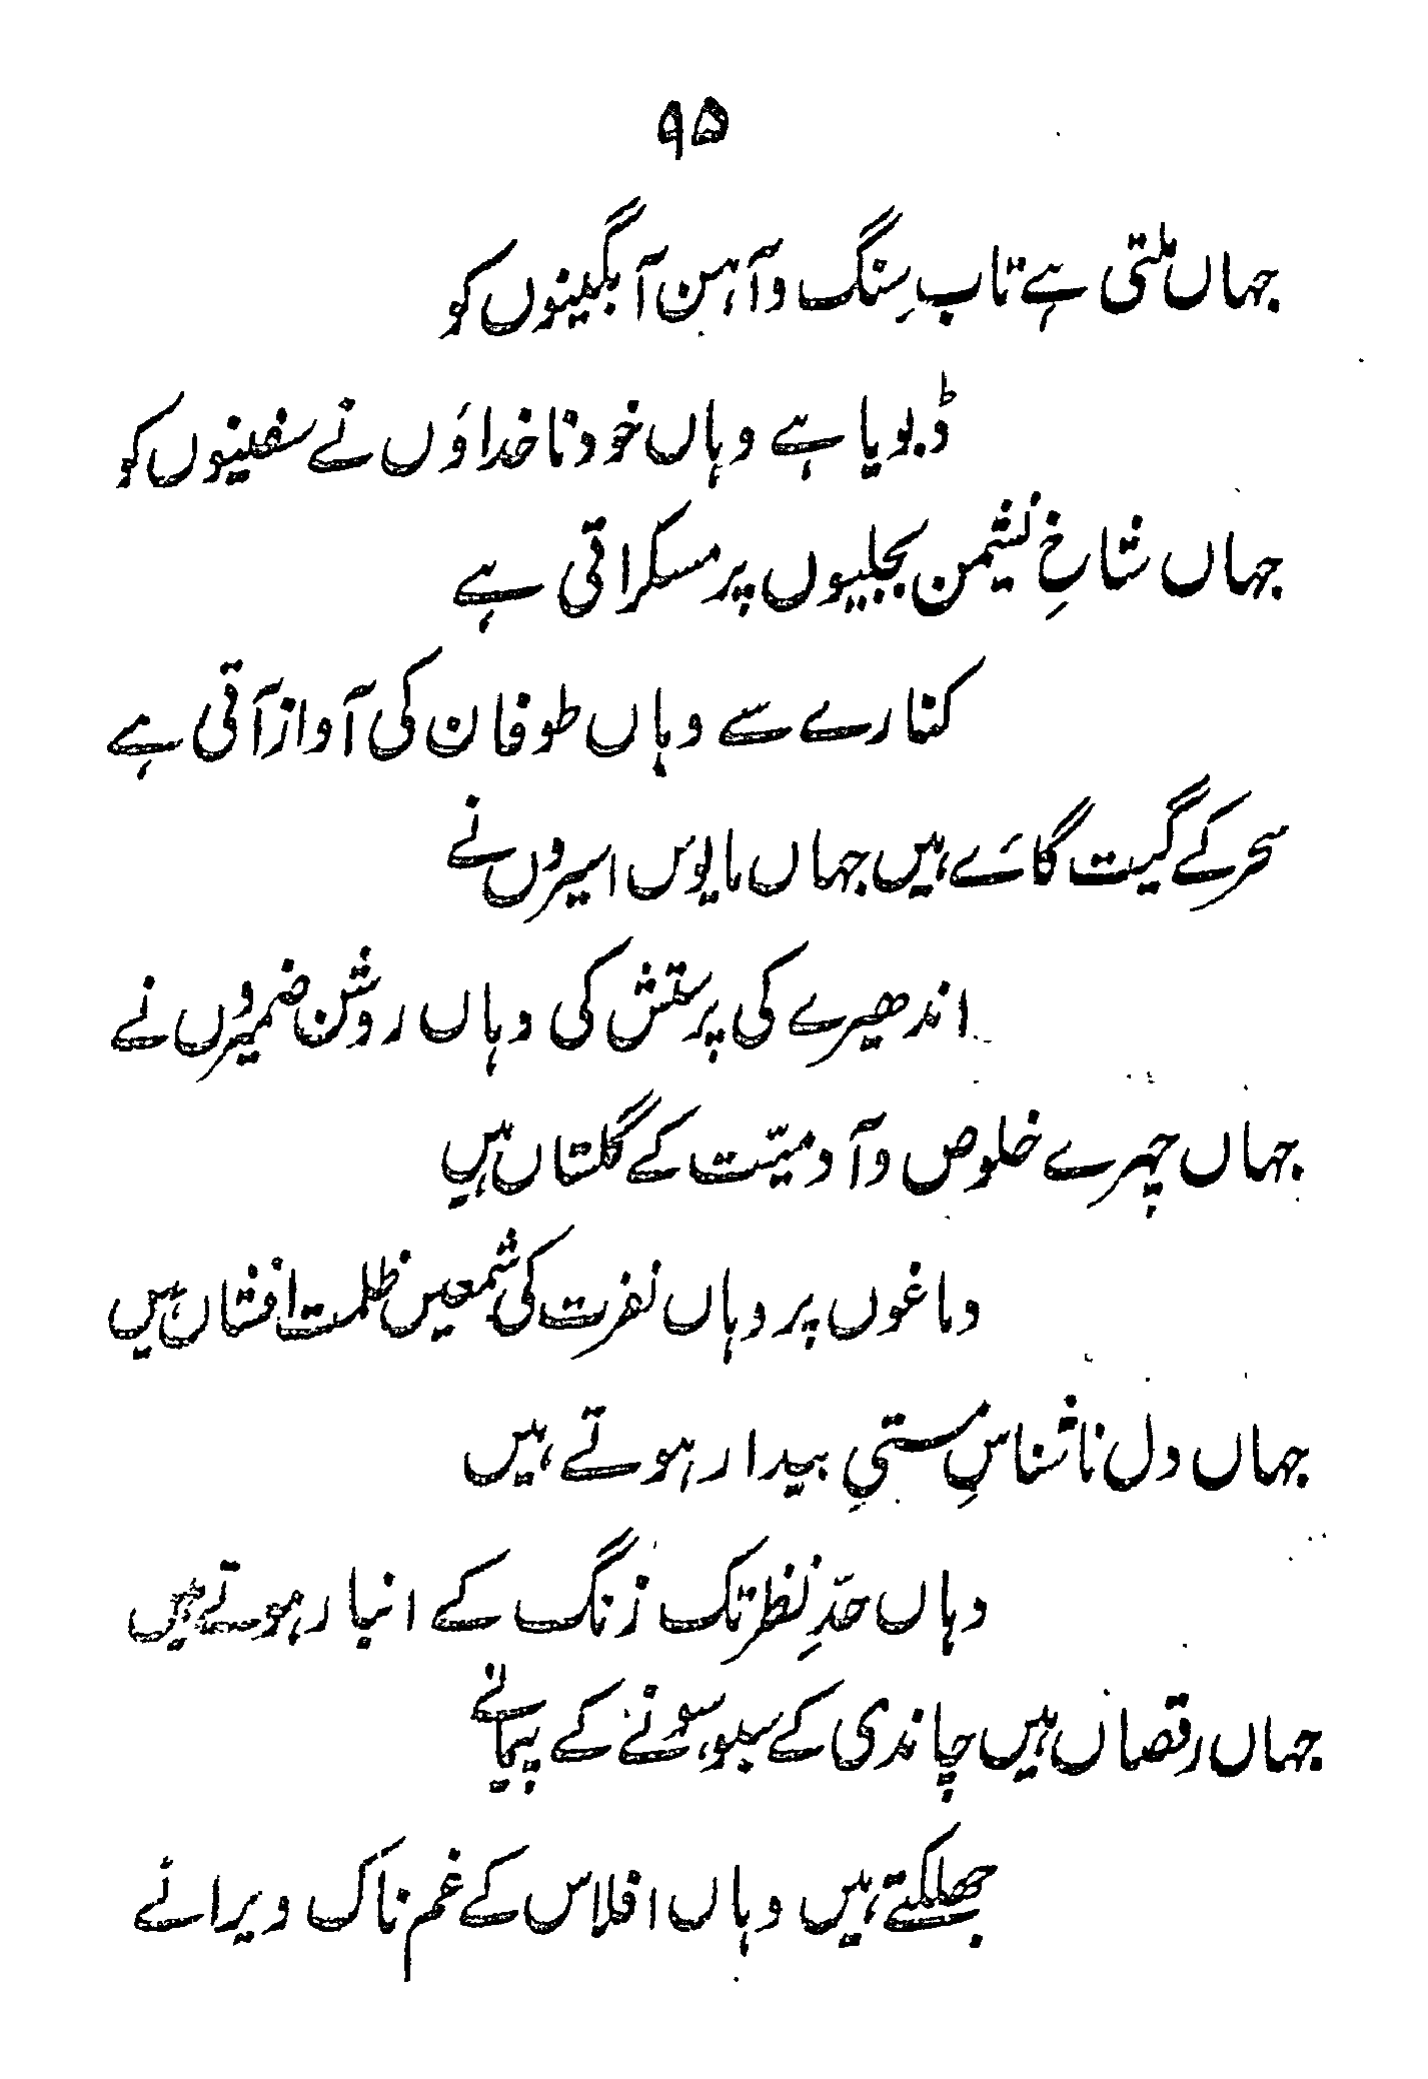 ۹۵
جہاں ملتی ہے تاب سِنگ و آہن آبگینوں کو
ڈبویا ہے وہاں خود ناخداؤں نے سفینوں کو
جہاں شاخِ نشیمن بجلیوں پر مسکراتی ہے
کنارے سے وہاں طوفان کی آواز آتی ہے
سحر کے گیت گائے ہیں جہاں مایوس اسیروں نے
اندھیرے کی پرستش کی وہاں روشن ضمیروں نے
جہاں چہرے خلوص و آدمیّت کے گلستاں ہیں
دماغوں پر وہاں نفرت کی شمعیں ظلمت افشاں ہیں
جہاں دل ناشناسِ مستیِ بیدار ہوتے ہیں
وہاں حدِّ نظر تک زنگ کے انبار ہوتے ہیں
جہاں رقصاں ہیں چاندی کے سبو، سونے کے پیمانے
جھلکتے ہیں وہاں افلاس کے غم ناک ویرانے